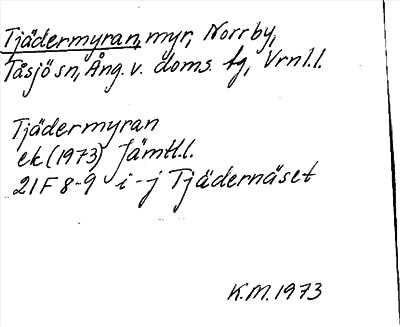 Tjädermyran, myr, Norrby,
Tåsjö sn, Ång. v. doms. fg, Vrnl.l.
Tjädermyran
ek (1973) Jämtl.l.
21F 8-9 i-j Tjädernäset
K.M. 1973